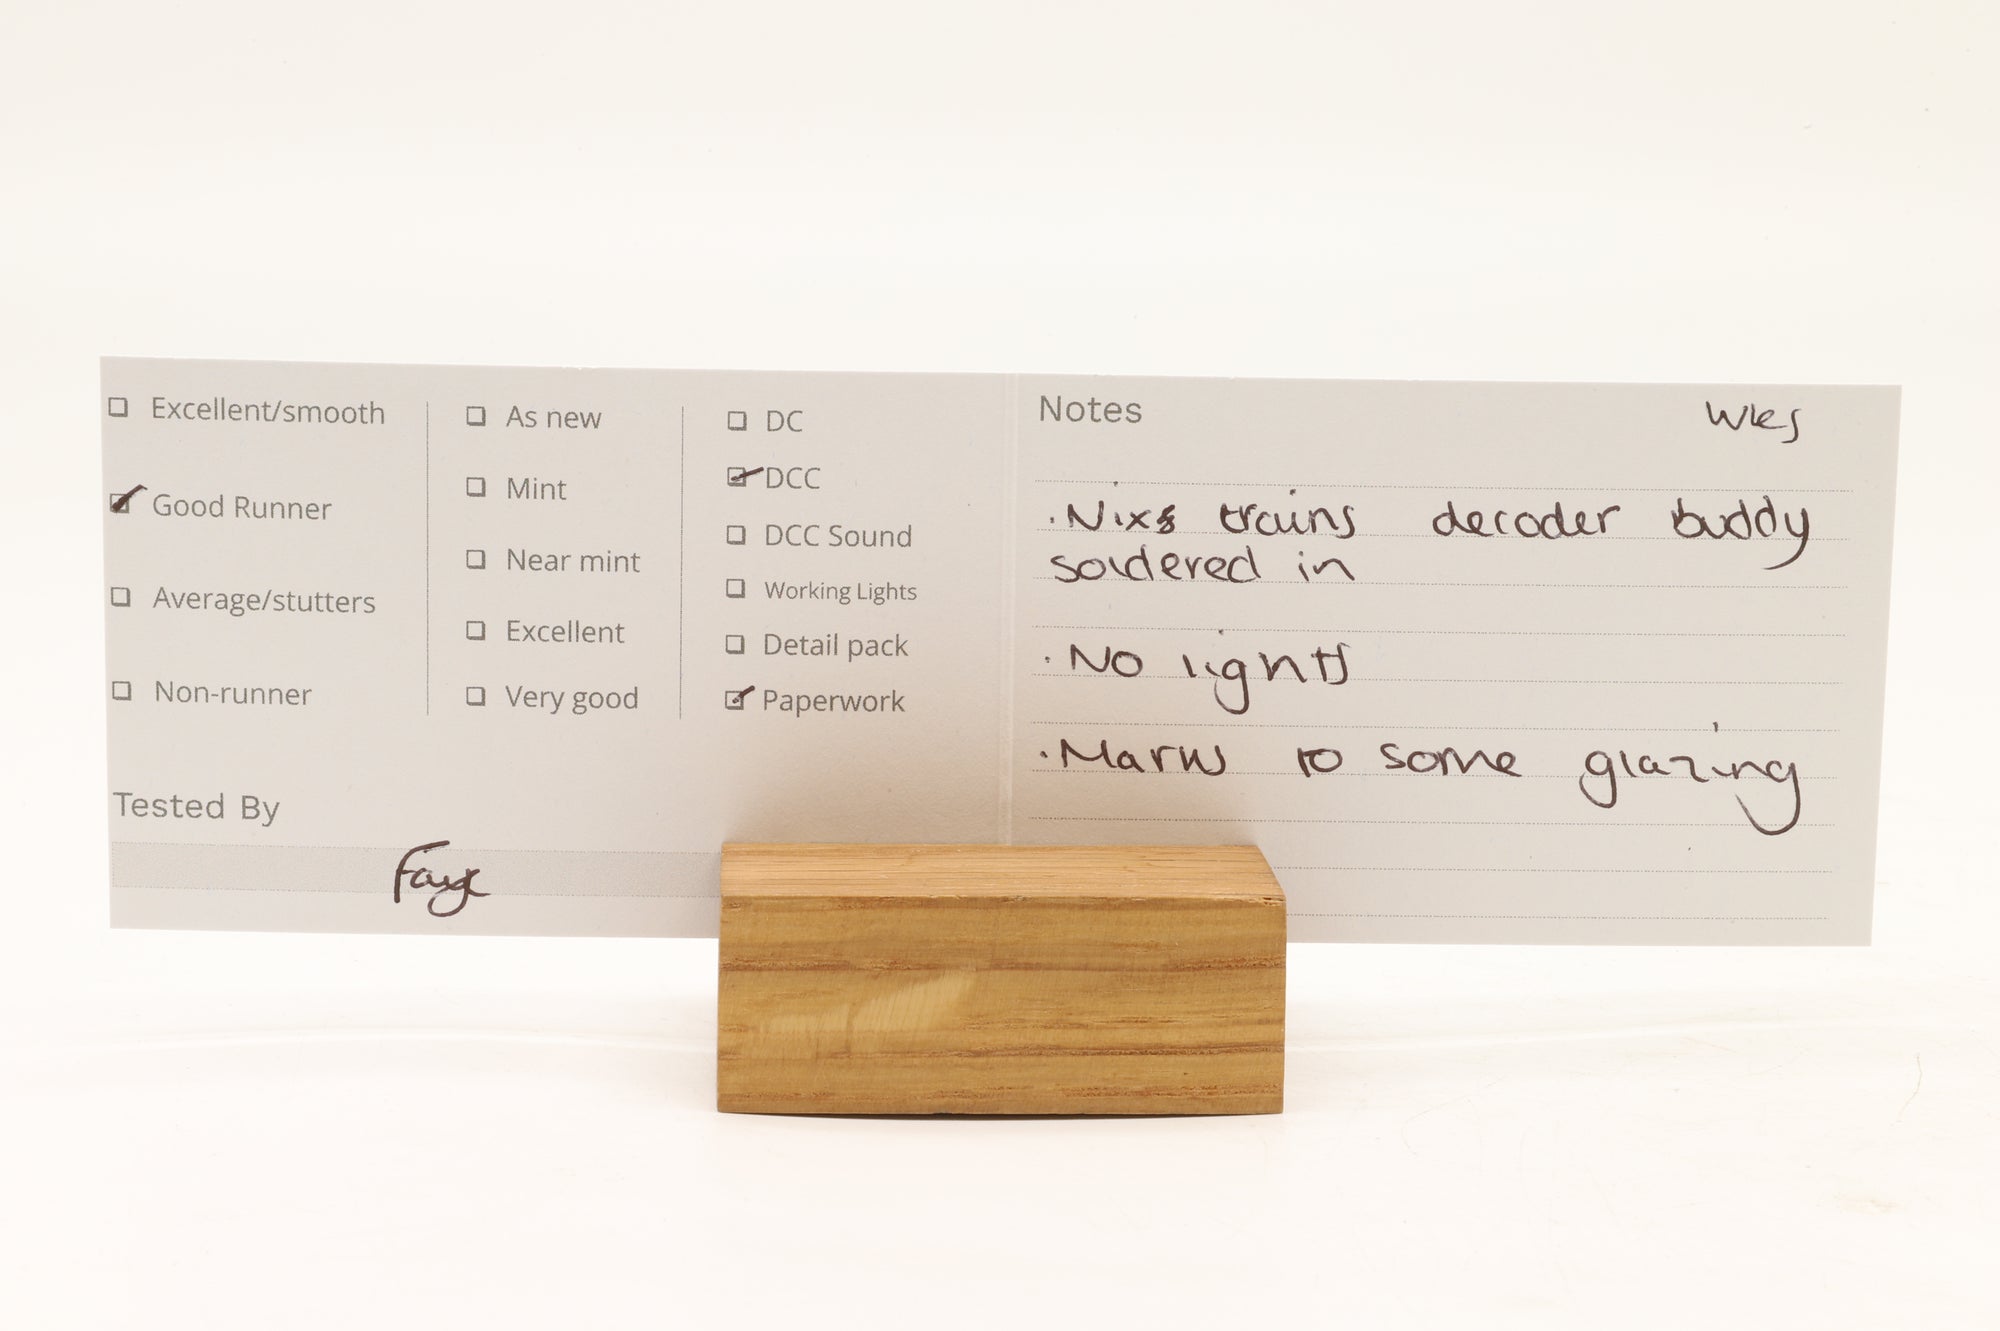 Excellent/smooth
Good Runner
Average/stutters
Non-runner
As new
Mint
Near mint
Excellent
Very good
DC
DCC
DCC Sound
Working Lights
Detail pack
Paperwork
Tested By
Faye
Notes
· Nixs trains decoder buddy
soldered in
· No lights
· Marks to some glazing